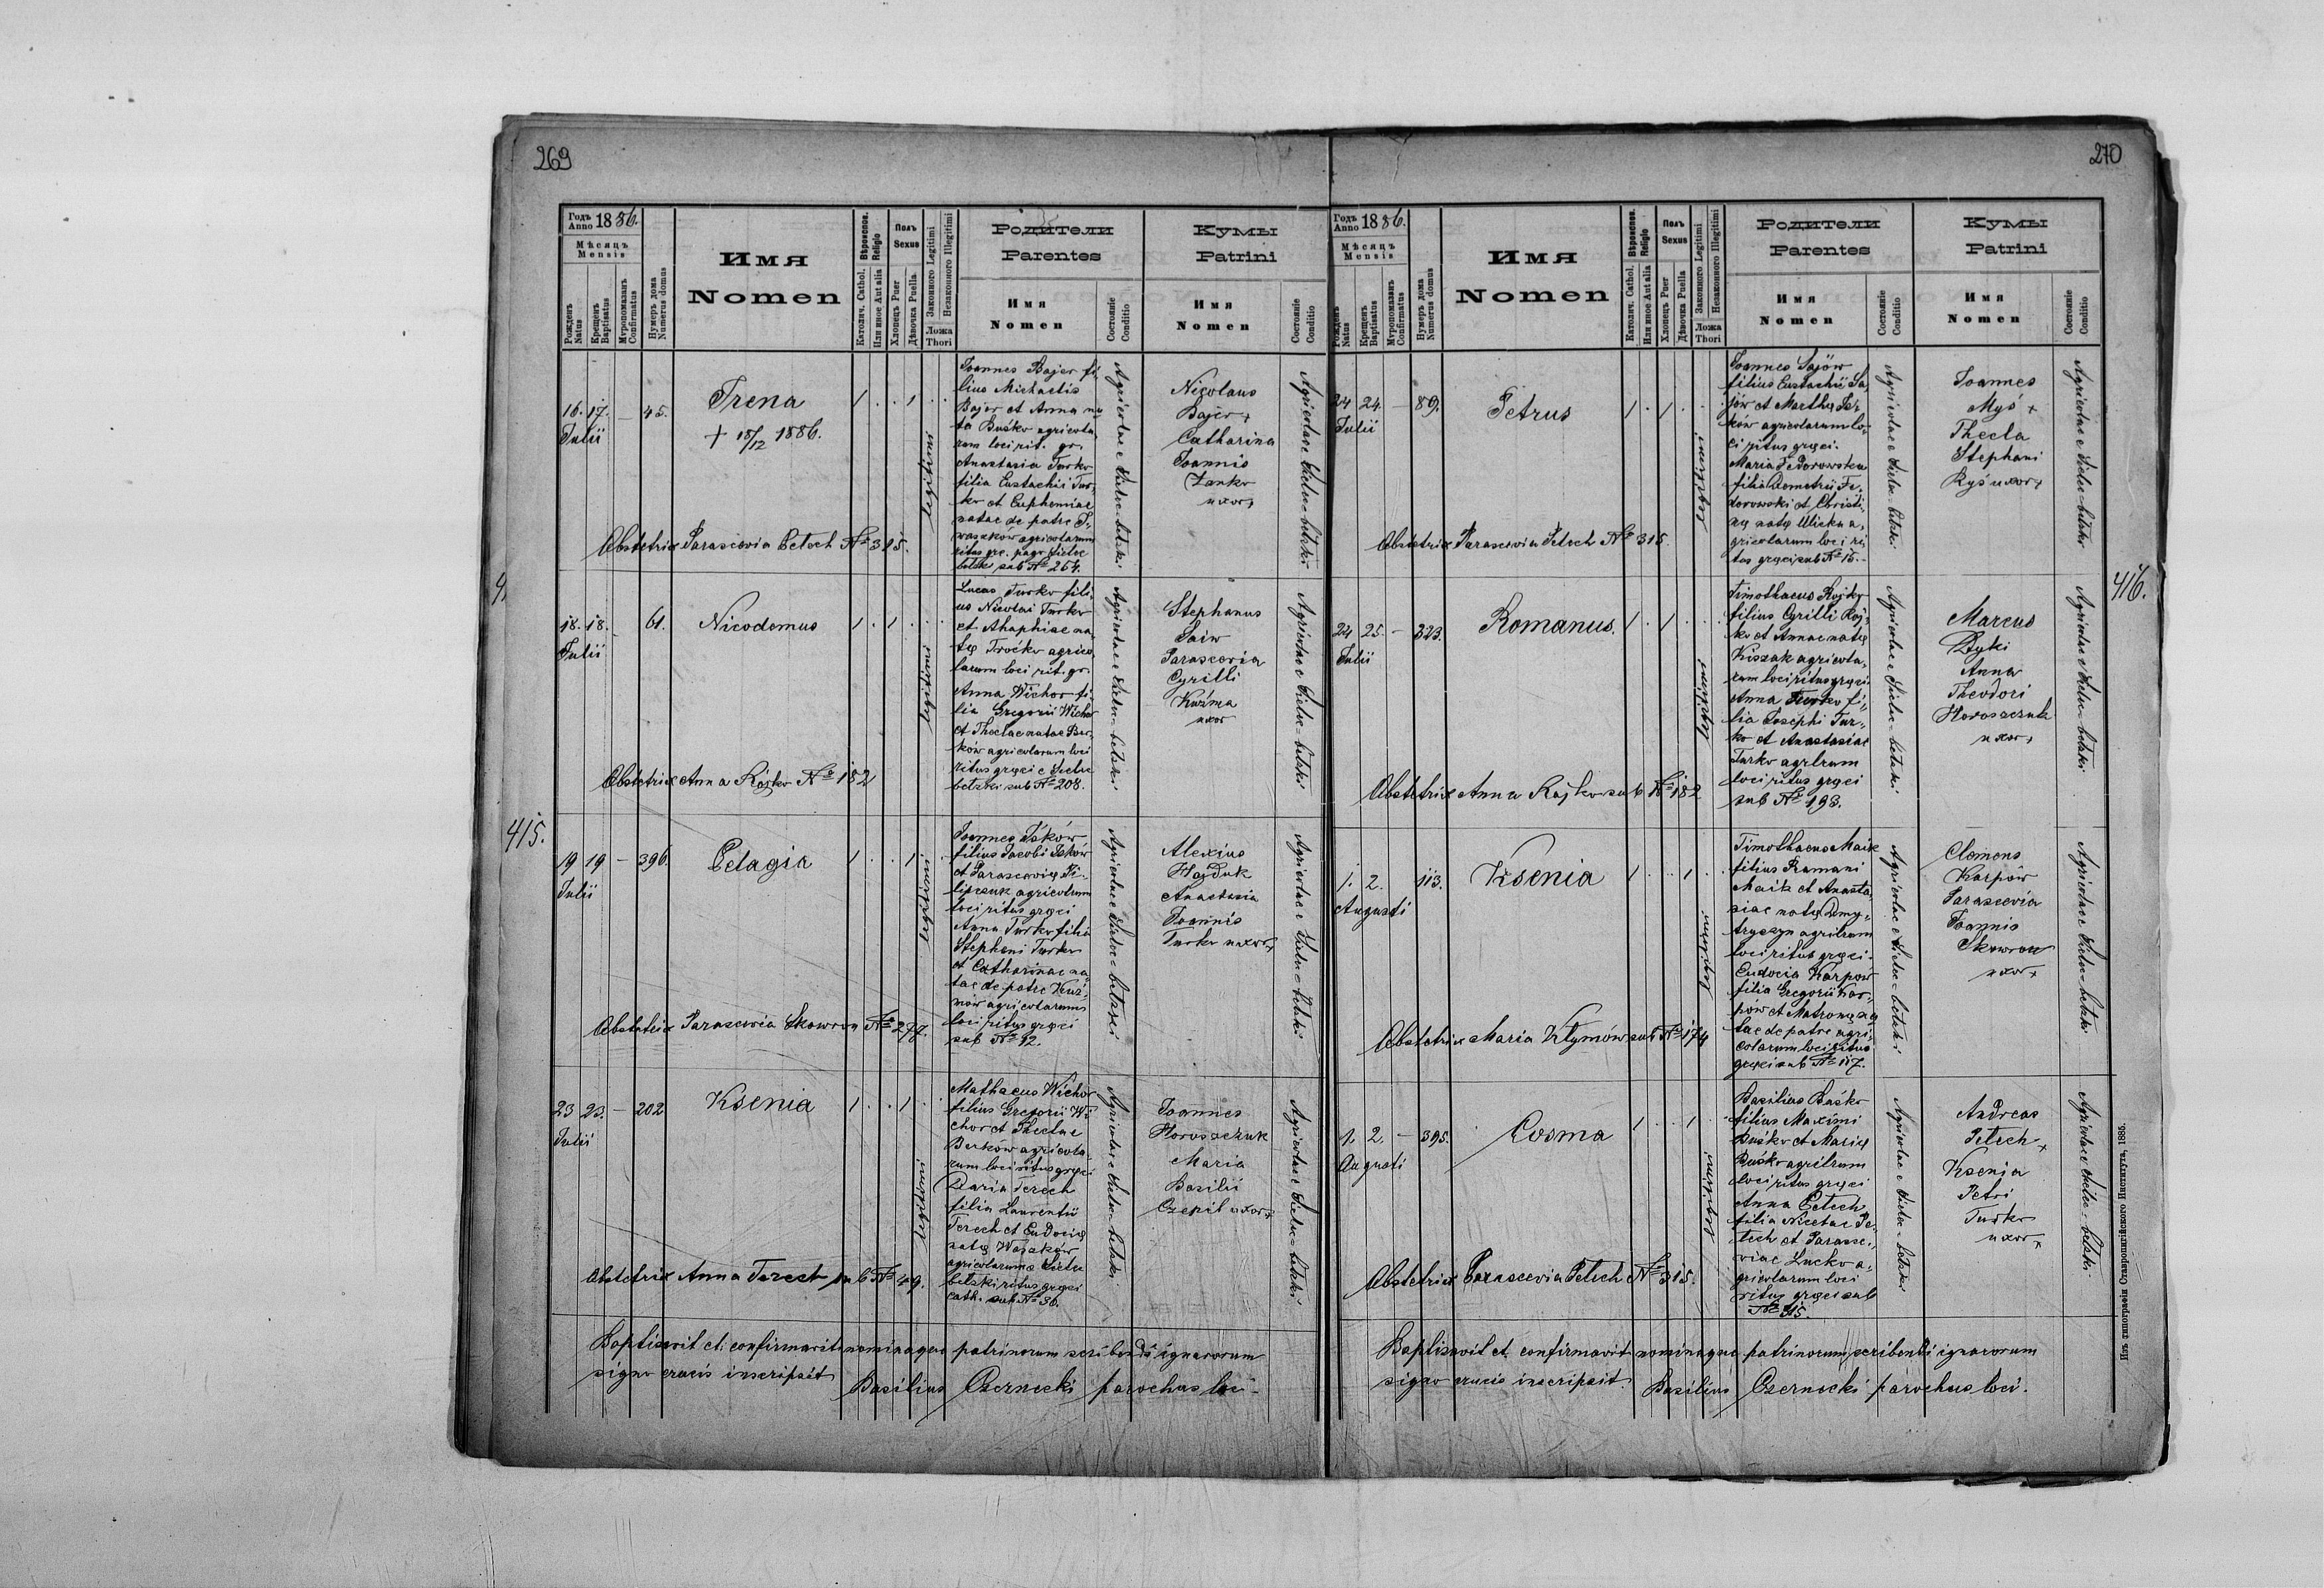 269
Годъ Anno 1886.
Мѣсяцъ
Mensis
Рожденъ Natus
Крещенъ Baptisatus
Мѵропомазанъ Confirmatus
Нумеръ дома Numerus domus
Имя
Nomen
Вѣроисповѣд. Religio
Католич. Cathol.
Или иное Aut alia
Полъ Sexus
Хлопецъ Puer
Дѣвочка Puella
Законного Legitimi
Незаконного Illegitimi
Ложа
Thori
Родители
Parentes
Имя
Nomen
Состояніе
Conditio
Кумы
Patrini
Имя
Nomen
Состояніе
Conditio
16. 17. — 45.
Julii
Irena
+ 18/12 1886.
1 . . 1 . .
legitimi
Joannes Bajer fi-
lius Michaelis
Bajer et Anna na-
ta Buśko agricola-
rum loci rit. gr.
Anastasia Turko
filia Eustachii Tur-
ko et Euphemiae
natae de patre I-
waszków agricolarum
ritus gre. pago Sielec
belski sub № 264.
Agricolae e Sielec-belski
Nicolaus
Bajer +
Catharina
Joannis
Łanko
uxor +
Agricolae e Sielec-belski
Obstetrix Parascevia Petech № 315.
18. 18. 61.
Julii
Nicodemus
1 . 1 . . .
legitimi
Lucas Turko fili-
us Nicolai Turko
et Ahaphiae na-
tę Troćko agrico-
larum loci rit. gr.
Anna Wichor fi-
lia Gregorii Wichor
et Theclae natae Ber-
ków agricolarum loci
ritus gręci e Sielec
belzki sub № 208.
Agricolae e Sielec-belski
Stephanus
Saiw
Parascevia
Cyrilli
Kuźma
uxor
Agricolae e Sielec-belski
Obstetrix Anna Rójko № 182
415.
19 19 — 396.
Julii
Pelagia
1 . . 1 . .
legitimi
Joannes Iśków
filius Jacobi Iśków
et Parascevię Pi-
lipczuk agricolarum
loci ritus gręci
Anna Turko filia
Stephani Turko
et Catharinae na-
tae de patre Kuź-
mów agricolarum
loci ritus gręci
sub № 12.
Agricolae e Sielec-belzsci
Alexius
Hajduk
Anastasia
Joannis
Turko uxor +
Agricolae e Sielec-belski
Obstetrix Parascevia Skowron № 277.
23 23. — 202
Julii
Ksenia
1 . . 1 . .
legitimi
Mathaeus Wichor
filius Gregorii Wi-
chor et Theclae
Berków agricola-
rum loci ritus gręci
Daria Terech
filia Laurentii
Terech et Eudocię
natę Wojaków
agricolarum e Sielec
belzki ritus gręci
cath. sub № 30.
Agricolae e Sielec-belski
Joannes
Horoszczuk
Maria
Basilii
Czepil uxor +
Agricolae e Sielec-belski
Obstetrix Anna Terech sub № 49.
Baptisavit et confirmavit nominaque patrinorum scribendi ignarorum
signo crucis inscripsit
Basilius Czernecki parochus loci.
270
Годъ Anno 1886.
Мѣсяцъ
Mensis
Рожденъ Natus
Крещенъ Baptisatus
Мѵропомазанъ Confirmatus
Нумеръ дома Numerus domus
Имя
Nomen
Вѣроисповѣд. Religio
Католич. Cathol.
Или иное Aut alia
Полъ Sexus
Хлопецъ Puer
Дѣвочка Puella
Законного Legitimi
Незаконного Illegitimi
Ложа
Thori
Родители
Parentes
Имя
Nomen
Состояніе
Conditio
Кумы
Patrini
Имя
Nomen
Состояніе
Conditio
24 24. — 89.
Julii
Petrus
1 . 1 . . .
legitimi
Joannes Sajów
filius Eustachii Sa-
jów et Marthę Ser-
ków agricolarum lo-
ci ritus gręci.
Maria Fedorowska
filia Demetrii Fe-
dorowski et Christi-
nę natę Ulicka a-
gricolarum loci ri-
tus gręci sub № 15.
Agricolae e Sielec-belski
Joannes
Myś +
Thecla
Stephani
Ryś uxor +
Agricolae e Sielec-belski
Obstetrix Parascevia Petech № 315.
416.
24 25. — 323.
Julii
Romanus.
1 . 1 . . .
legitimi
Timothaeus Rójko
filius Cyrilli Rój-
ko et Annae natę
Kiszak agricola-
rum loci ritus gręci.
Anna Turko fi-
lia Josephi Tur-
ko et Anastasiae
Turko agrlrum
loci ritus gręci
sub № 193.
Agricolae e Sielec-belski
Marcus
Ptyki
Anna
Theodori
Horoszczuk
uxor +
Agricolae e Sielec-belski
Obstetrix Anna Rójko sub № 182
1. 2. 113.
Augusti
Ksenia
1 . . 1 . .
legitimi
Timothaeus Maik
filius Romani
Maik et Anasta-
siae natę Dmy-
tryszyn agrilrum
loci ritus gręci.
Eudocia Karpów
filia Gregorii Kar-
pów et Matronę na-
tae de patre agri-
colarum loci ritus
gręci sub № 117.
Agricolae e Sielec-belski
Clemens
Karpów
Parascevia
Joannis
Skowron
uxor +
Agricolae e Sielec-belski
Obstetrix Maria Kłymów sub № 174
1. 2. — 395.
Augusti
Cosma
1 . . 1 . .
legitimi
Basilius Baśko
filius Maximi
Buśko et Marię
Buśko agrilrum
loci ritus gręci
Anna Petech
filia Nicetae Pe-
tech et Parasce-
viae Lucko a-
gricolarum loci
ritus gręci sub
№ 315.
Agricolae e Sielec-belski
Andreas
Petech +
Ksenia
Petri
Turko
uxor +
Agricolae e Sielec-belski.
Obstetrix Parascevia Petech № 315.
Baptisavit et confirmavit nominaque patrinorum scribendi ignarorum
signo crucis inscripsit.
Basilius Czernecki parochus loci.
Изъ типографіи Ставропигійского Института, 1885.